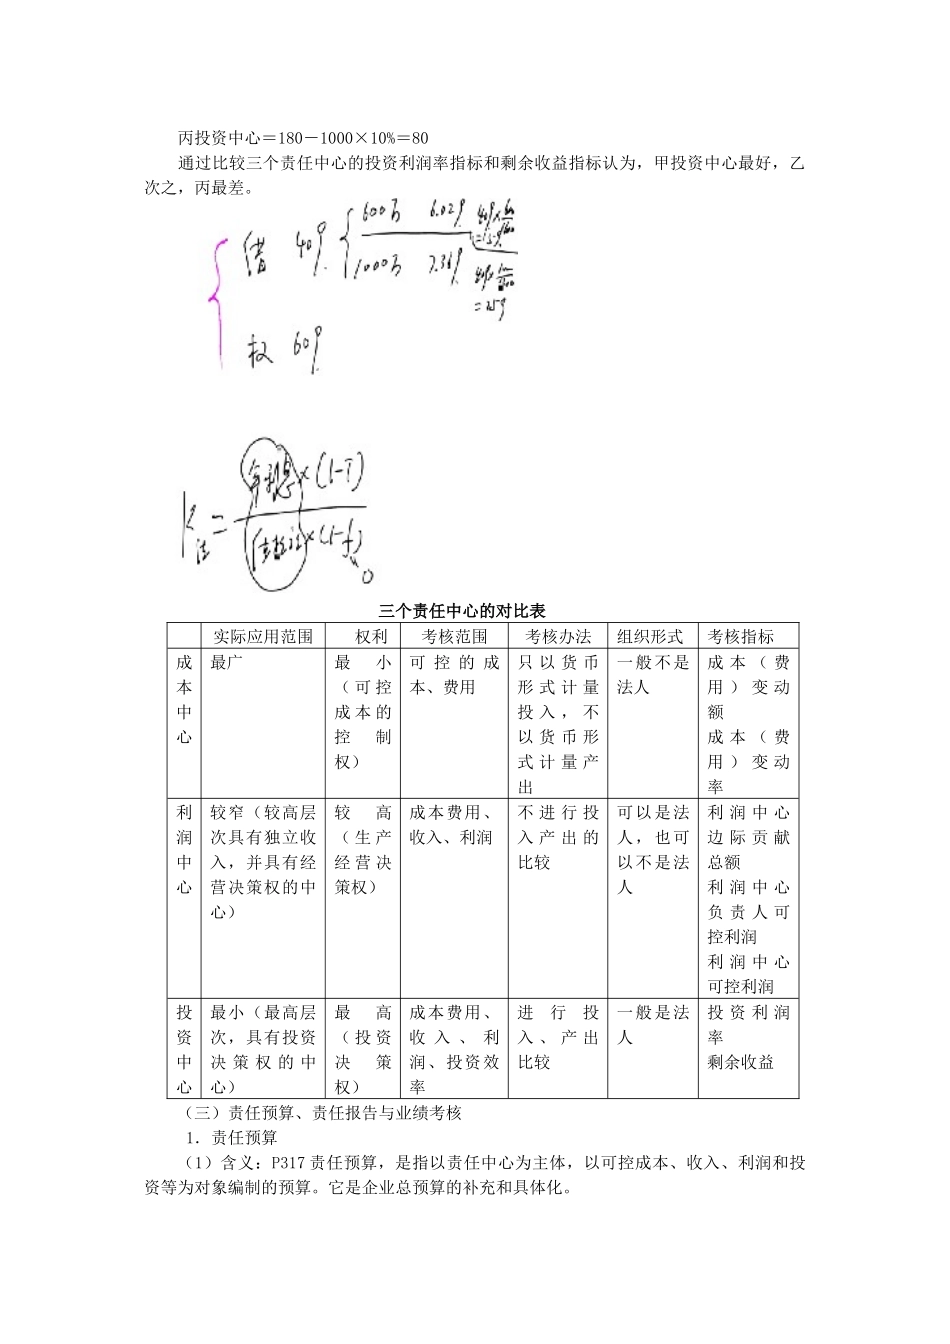 丙投资中心＝180－1000×10%＝80
通过比较三个责任中心的投资利润率指标和剩余收益指标认为，甲投资中心最好，乙
次之，丙最差。
借 40% 600万 6.02%
1000万 7.36%
=25%
权 60%
K =
×(1-T)
×(1-f)
0
三个责任中心的对比表
实际应用范围 权利 考核范围 考核办法 组织形式 考核指标
成
本
中
心
最广
最小
（可控
成本的
控制
权）
可控的成
本、费用
只以货币
形式计量
投入，不
以货币形
式计量产
出
一般不是
法人
成本（费
用）变动
额
成本（费
用）变动
率
利
润
中
心
较窄（较高层
次具有独立收
入，并具有经
营决策权的中
心）
较高
（生产
经营决
策权）
成本费用、
收入、利润
不进行投
入产出的
比较
可以是法
人，也可
以不是法
人
利润中心
边际贡献
总额
利润中心
负责人可
控利润
利润中心
可控利润
投
资
中
心
最小（最高层
次，具有投资
决策权的中
心）
最高
（投资
决策
权）
成本费用、
收入、利
润、投资效
率
进行投
入、产出
比较
一般是法
人
投资利润
率
剩余收益
（三）责任预算、责任报告与业绩考核
1．责任预算
（1）含义：P317 责任预算，是指以责任中心为主体，以可控成本、收入、利润和投
资等为对象编制的预算。它是企业总预算的补充和具体化。